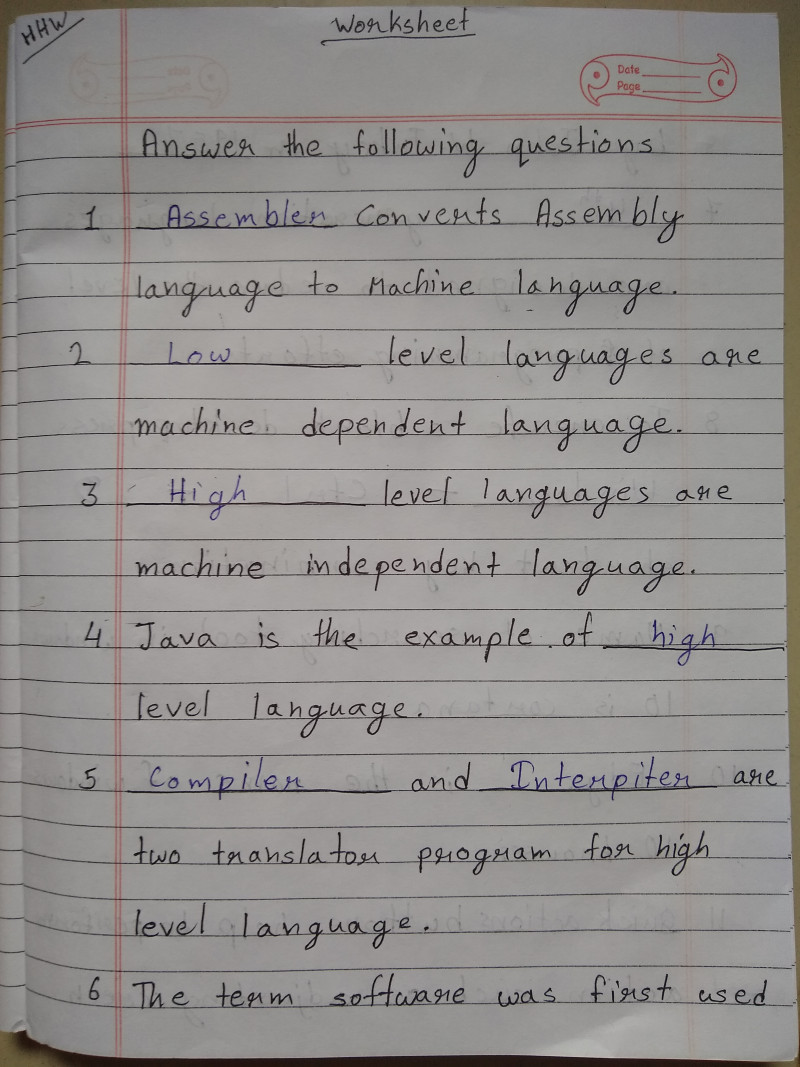 HHW
Worksheet
Date
Page
Answer the following questions
1 Assembler Converts Assembly
language to Machine language.
2 Low level languages are
machine dependent language.
3 High level languages are
machine independent language.
4 Java is the example of high
level language.
5 Compiler and Interpiter are
two translator program for high
level language.
6 The term software was first used